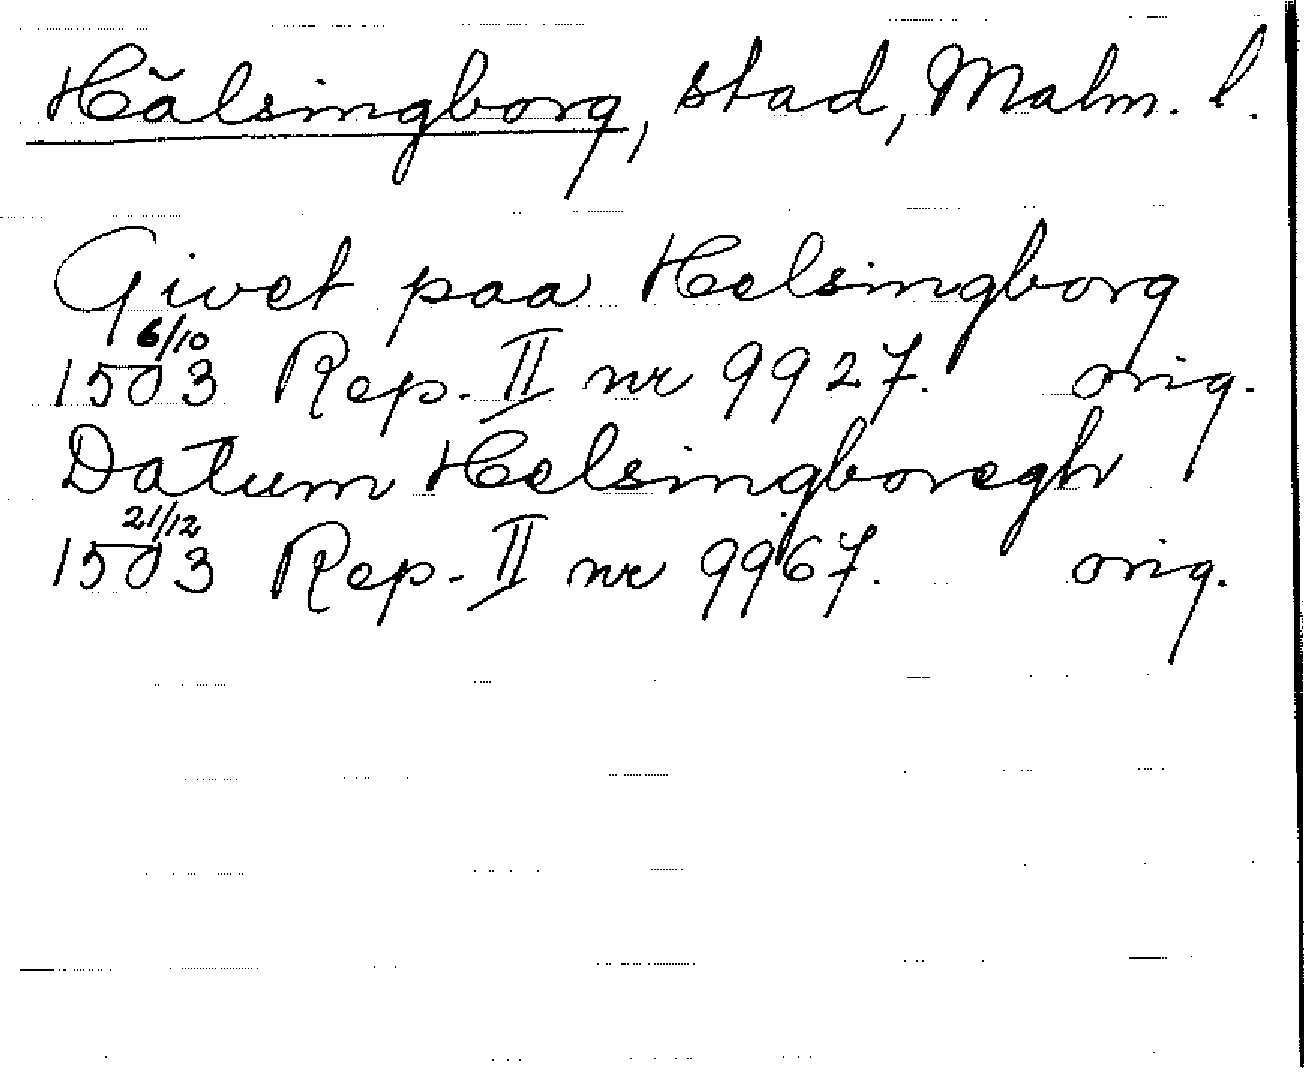 Hälsingborg, stad, Malm. l.
Givet paa Helsingborg
6/10
1503 Rep. II nr 9927. orig.
Datum Helsingboregh
21/12
1503 Rep. II nr 9967. orig.